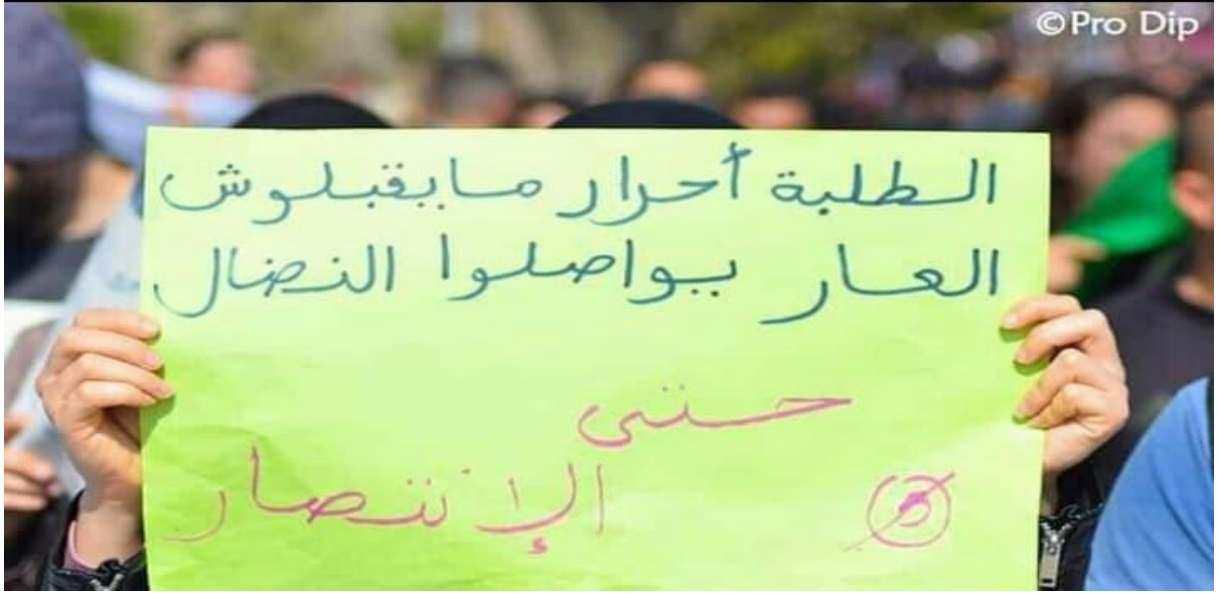 ©Pro Dip
الطلبة أحرار مايقبلوش
العار يواصلوا النضال
حتى
الإنتصار
5